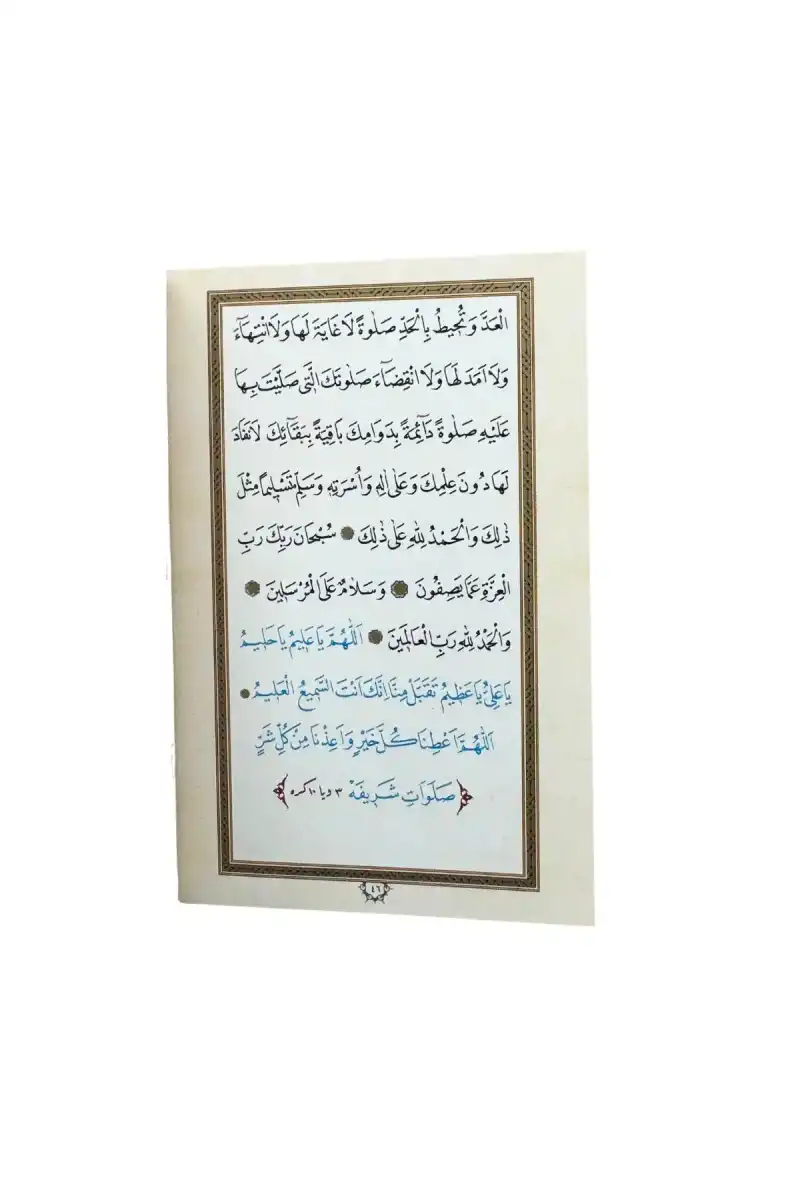 الْعَدَّ وَتُحيطُ بِالْحَدِّ صَلٰوةً لَا غَايَةَ لَهَا وَلَا انْتِهَآءَ
وَلَا اَمَدَ لَهَا وَلَا انْقِضَآءَ صَلَوٰتَكَ الَّتى صَلَّيْتَ بِهَا
عَلَيْهِ صَلٰوةً دَآئِمَةً بِدَوَامِكَ بَاقِيَةً بِبَقَآئِكَ لَا نَفَادَ
لَهَا دُونَ عِلْمِكَ وَعَلٰى اٰلِه وَاُسْرَتِه وَسَلِّمْ تَسْليمًا مِثْلَ
ذٰلِكَ وَالْحَمْدُ لِلّٰهِ عَلٰى ذٰلِكَ ● سُبْحَانَ رَبِّكَ رَبِّ
الْعِزَّةِ عَمَّا يَصِفُونَ ● وَسَلَامٌ عَلَى الْمُرْسَلينَ ●
وَالْحَمْدُ لِلّٰهِ رَبِّ الْعَالَمينَ ● اَللّٰهُمَّ يَا عَليمُ يَا حَليمُ
يَا عَلِىُّ يَا عَظيمُ تَقَبَّلْ مِنَّا اِنَّكَ اَنْتَ السَّميعُ الْعَليمُ ●
اَللّٰهُمَّ اَعْطِنَا كُلَّ خَيْرٍ وَاَعِذْنَا مِنْ كُلِّ شَرٍّ
صَلَوَاتِ شَريفَهْ ٣ ويا ١٠ كره
٤٦